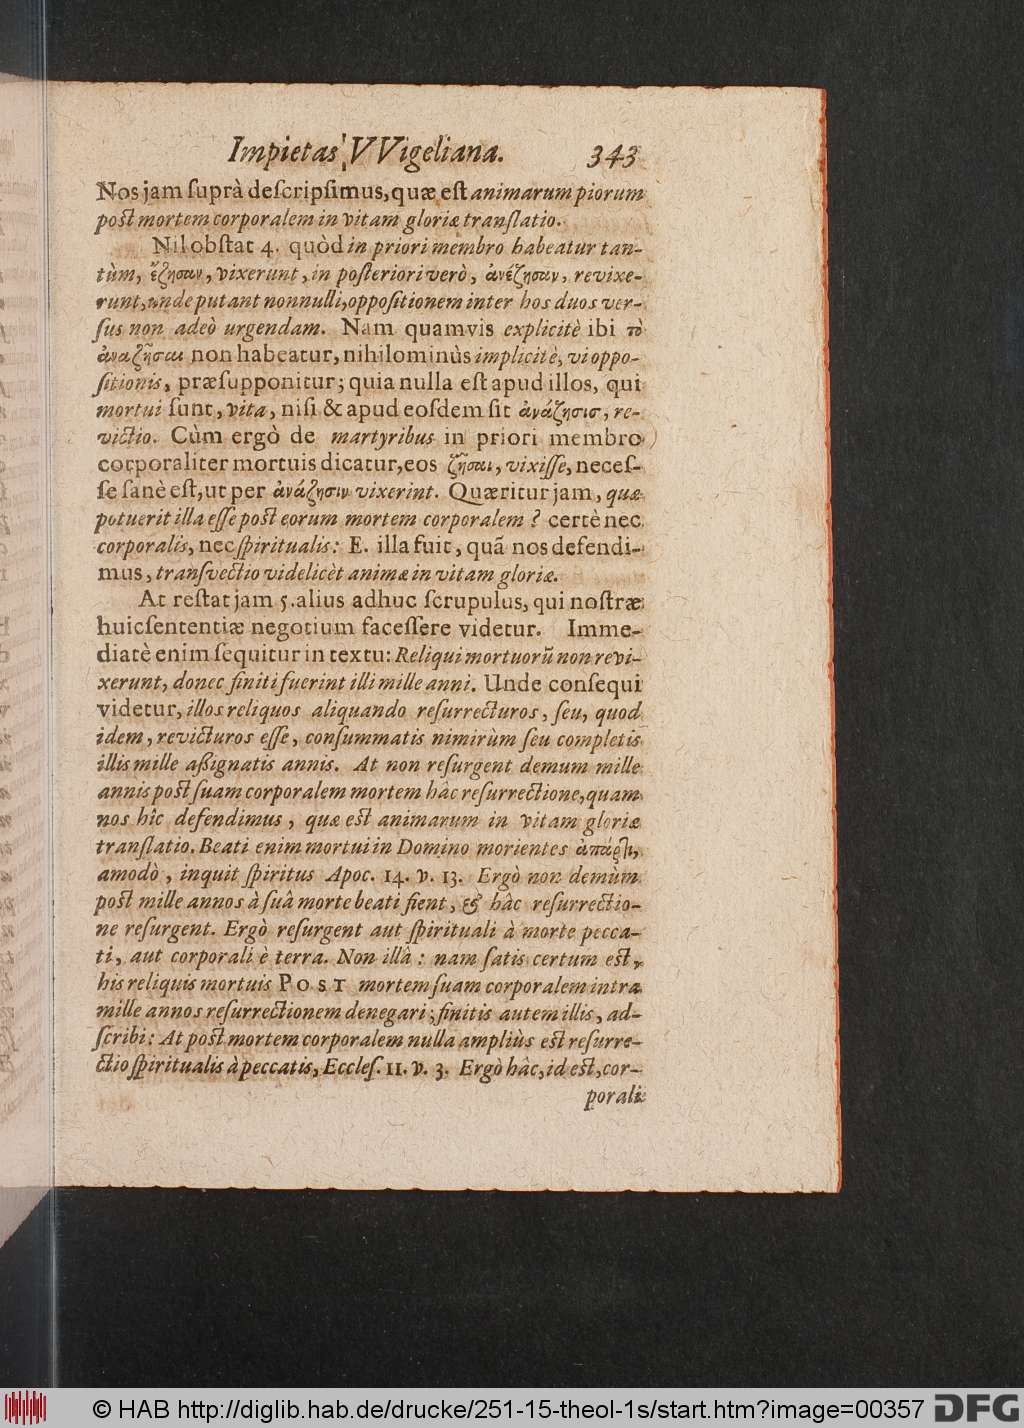 Impietas VVigeliana. 343
Nos jam ſuprà deſcripſimus, quæ eſt animarum piorum
poſt mortem corporalem in vitam gloriæ tranſlatio.
Nil obſtat 4. quòd in priori membro habeatur tan-
tùm, ἔζησαν, vixerunt, in poſteriori verò, ἀνέζησαν, revixe-
runt, unde putant nonnulli, oppoſitionem inter hos duos ver-
ſus non adeò urgendam. Nam quamvis explicitè ibi τὸ
ἀναζῆσαι non habeatur, nihilominùs implicitè, vi oppo-
ſitionis, præſupponitur; quia nulla eſt apud illos, qui
mortui ſunt, vita, niſi & apud eoſdem ſit ἀνάζησις, re-
victio. Cùm ergò de martyribus in priori membro
corporaliter mortuis dicatur, eos ζῆσαι, vixiſſe, neceſ-
ſe ſanè eſt, ut per ἀνάζησιν vixerint. Quæritur jam, quæ
potuerit illa eſſe poſt eorum mortem corporalem? certè nec
corporalis, nec ſpiritualis: E. illa fuit, quã nos defendi-
mus, tranſvectio videlicèt animæ in vitam gloriæ.
At reſtat jam 5. alius adhuc ſcrupulus, qui noſtræ
huic ſententiæ negotium faceſſere videtur. Imme-
diatè enim ſequitur in textu: Reliqui mortuorũ non revi-
xerunt, donec finiti fuerint illi mille anni. Unde conſequi
videtur, illos reliquos aliquando reſurrecturos, ſeu, quod
idem, revicturos eſſe, conſummatis nimirùm ſeu completis
illis mille aßignatis annis. At non reſurgent demum mille
annis poſt ſuam corporalem mortem hâc reſurrectione, quam
nos hîc defendimus, quæ est animarum in vitam gloriæ
tranſlatio. Beati enim mortui in Domino morientes ἀπάρτι,
amodò, inquit ſpiritus Apoc. 14. v. 13. Ergò non demùm
poſt mille annos à ſuâ morte beati fient, & hâc reſurrectio-
ne reſurgent. Ergò reſurgent aut ſpirituali à morte pecca-
ti, aut corporali è terra. Non illâ: nam ſatis certum eſt,
his reliquis mortuis POST mortem ſuam corporalem intra
mille annos reſurrectionem denegari; finitis autem illis, ad-
ſcribi: At poſt mortem corporalem nulla ampliùs eſt reſurre-
ctio ſpiritualis à peccatis, Eccleſ. 11. v. 3. Ergò hâc, id eſt, cor-
porali
© HAB http://diglib.hab.de/drucke/251-15-theol-1s/start.htm?image=00357
DFG